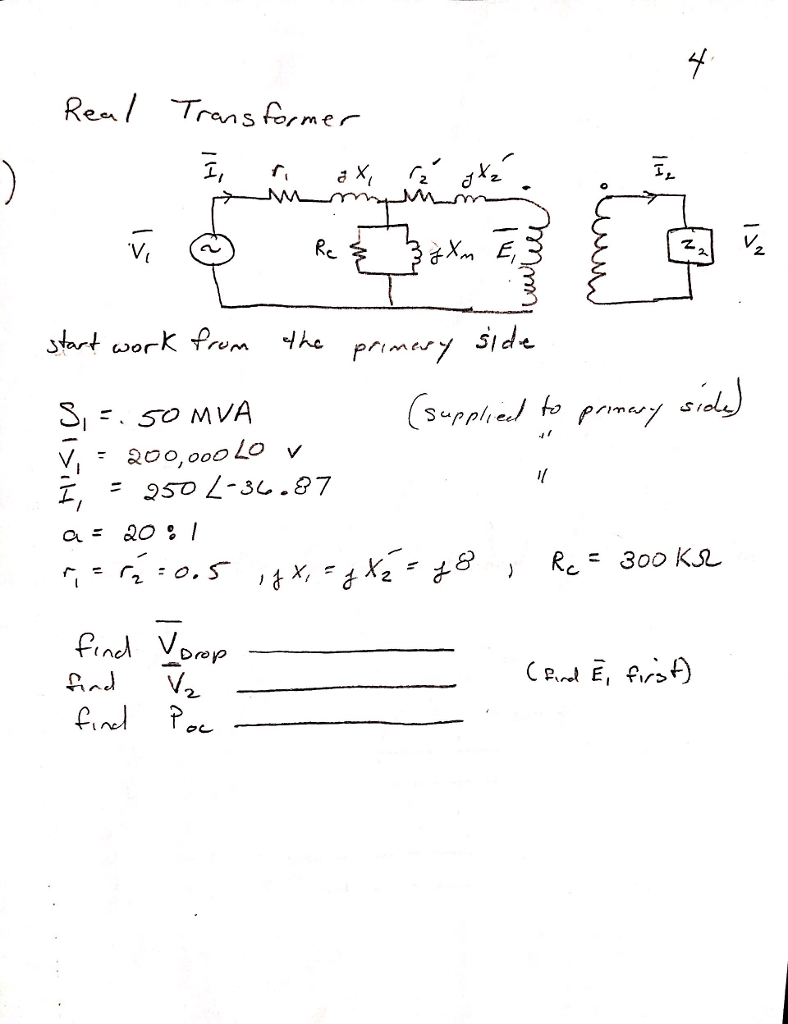 4.
Real Transformer
)
Ī₁ r₁ jX₁ r₂′ jX₂′ Ī₂
V̄₁ ~ Rc jXm Ē₁ Z₂ V̄₂
start work from the primary side
S₁ = . 50 MVA (supplied to primary side)
V̄₁ = 200,000∠0 V "
Ī₁ = 250∠-36.87 "
a = 20:1
r₁ = r₂′ = 0.5 , jX₁ = jX₂′ = j8 , Rc = 300 KΩ
find V̄Drop
find V̄₂ (find Ē₁ first)
find Poc